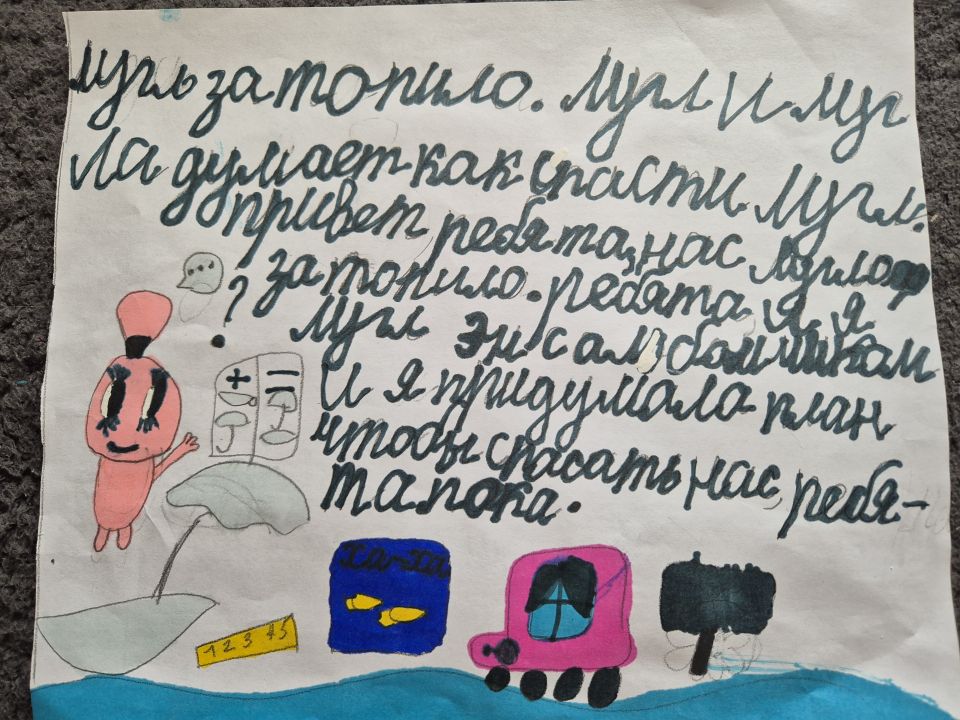 Мугль затопило. Мугл и муг
ла думает как спасти Мугл.
привет ребята, нас
затопило. ребята я, я
Мугл эн с
И я придумала план
чтобы спасать нас, ребя-
та пока.
?
+ =
ха-ха
1 2 3 4 5